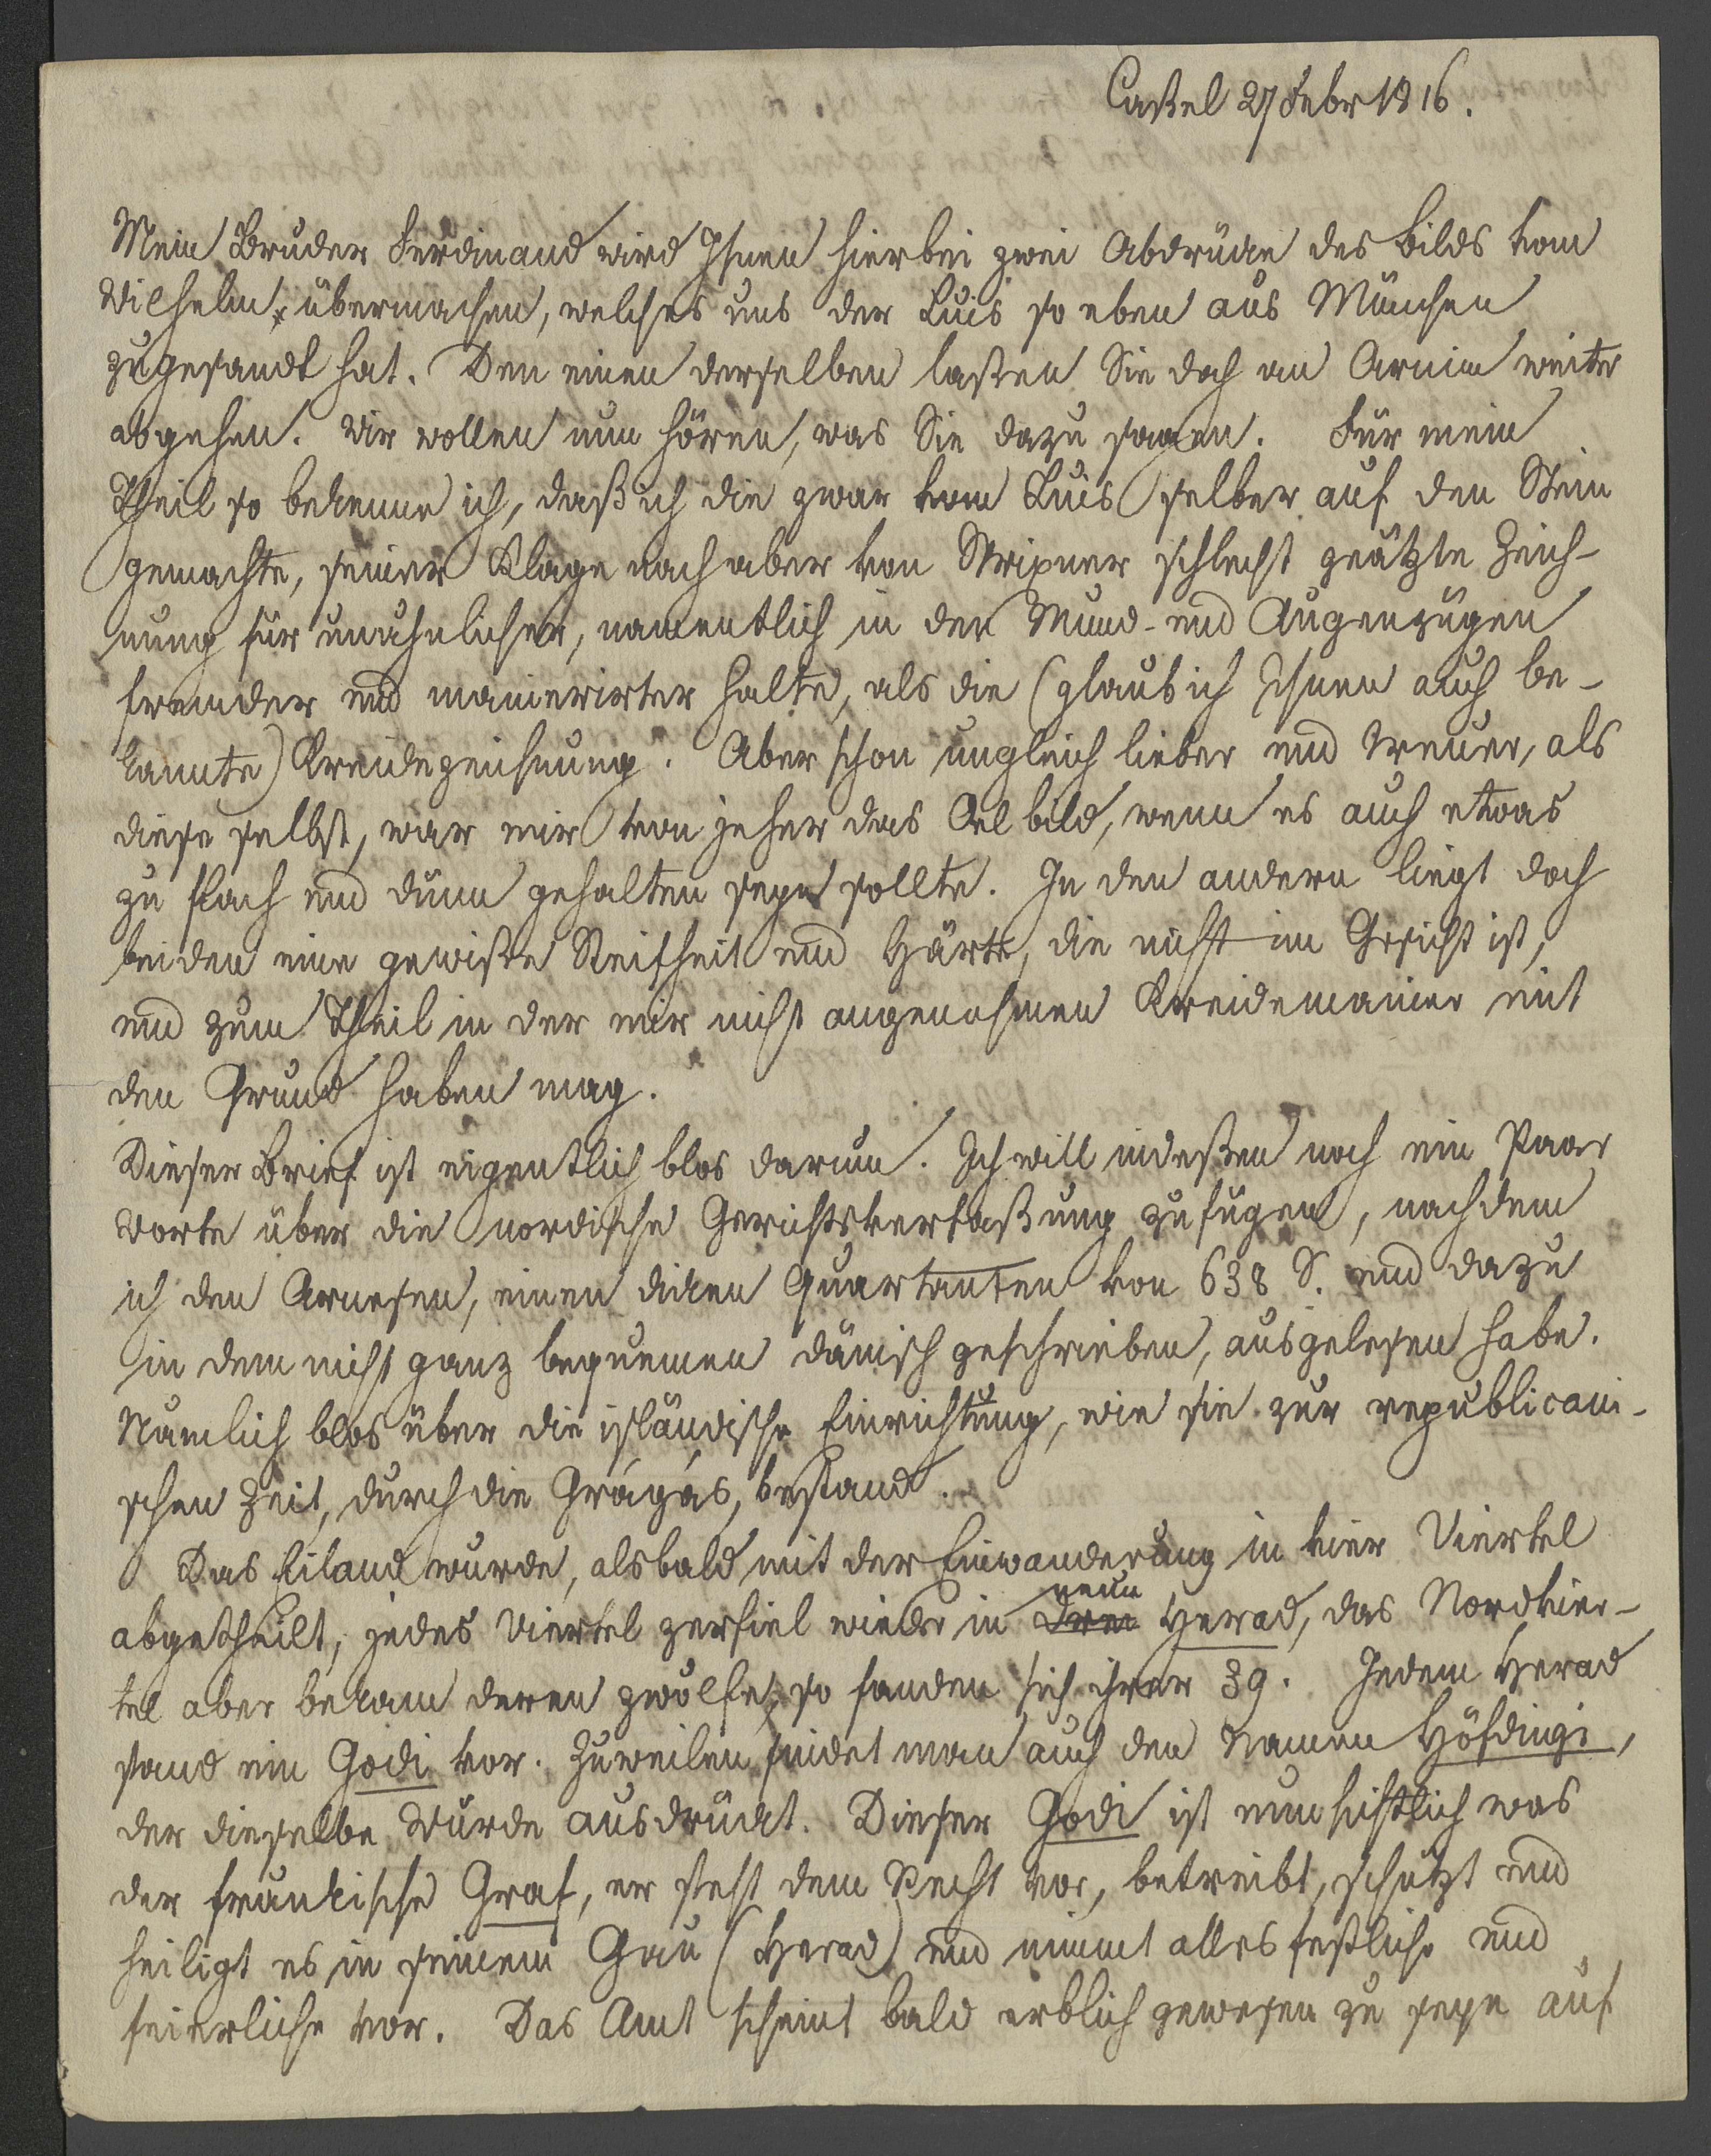 Caßel 27 Febr 1816.
Mein Bruder Ferdinand wird Ihnen hierbei zwei Abdrücke des Bilds vom
Wilhelm übermachen, welches uns der Luis so eben aus München
zugesandt hat. Den einen derselben laßen Sie doch an Arnim weiter
abgehen. Wir wollen nun hören, was Sie dazu sagen. Für mein
Theil so bekenne ich, daß ich die zwar vom Luis selber auf den Stein
gemachte, seiner Klage nach aber von Strixner schlecht geätzte Zeich-
nung für unähnlicher, namentlich in den Mund- und Augenzügen
fremder und manierirter halte, als die (glaub ich Ihnen auch be-
kannte) Kreidezeichnung. Aber schon ungleich lieber und treuer, als
diese selbst, war mir von jeher das Oelbild, wenn es auch etwas
zu flach und dünn gehalten seyn sollte. In den andern liegt doch
beiden eine gewiße Steifheit und Härte, die nicht im Gesicht ist,
und zum Theil in der mir nicht angenehmen Kreidemanier mit
den Grund haben mag.
Dieser Brief ist eigentlich blos darum. Ich will indeßen noch ein Paar
Worte über die nordische Gerichtsverfaßung zufügen, nachdem
ich den Arnesen, einen dicken Quartanten von 638 S. und dazu
in dem nicht ganz bequemen dänisch geschrieben, ausgelesen habe.
Nämlich blos über die isländische Einrichtung, wie sie zur republicani-
schen Zeit, durch die Grágás, bestand.
Das Eiland wurde, alsbald mit der Einwanderung in vier Viertel
abgetheilt, jedes Viertel zerfiel wieder in drei neun Herad, das Nordvier-
tel aber bekam deren zwölfe, so fanden sich ihrer 39. Jedem Herad
stand ein Godi vor. Zuweilen findet man auch den Namen Höfdingi,
der dieselbe Würde ausdrückt. Dieser Godi ist nun sichtlich was
der fränkische Graf, er steht dem Recht vor, betreibt, schützt und
heiligt es in seinem Gau (Herad) und nimmt alles festliche und
feierliche vor. Das Amt scheint bald erblich gewesen zu seyn auf